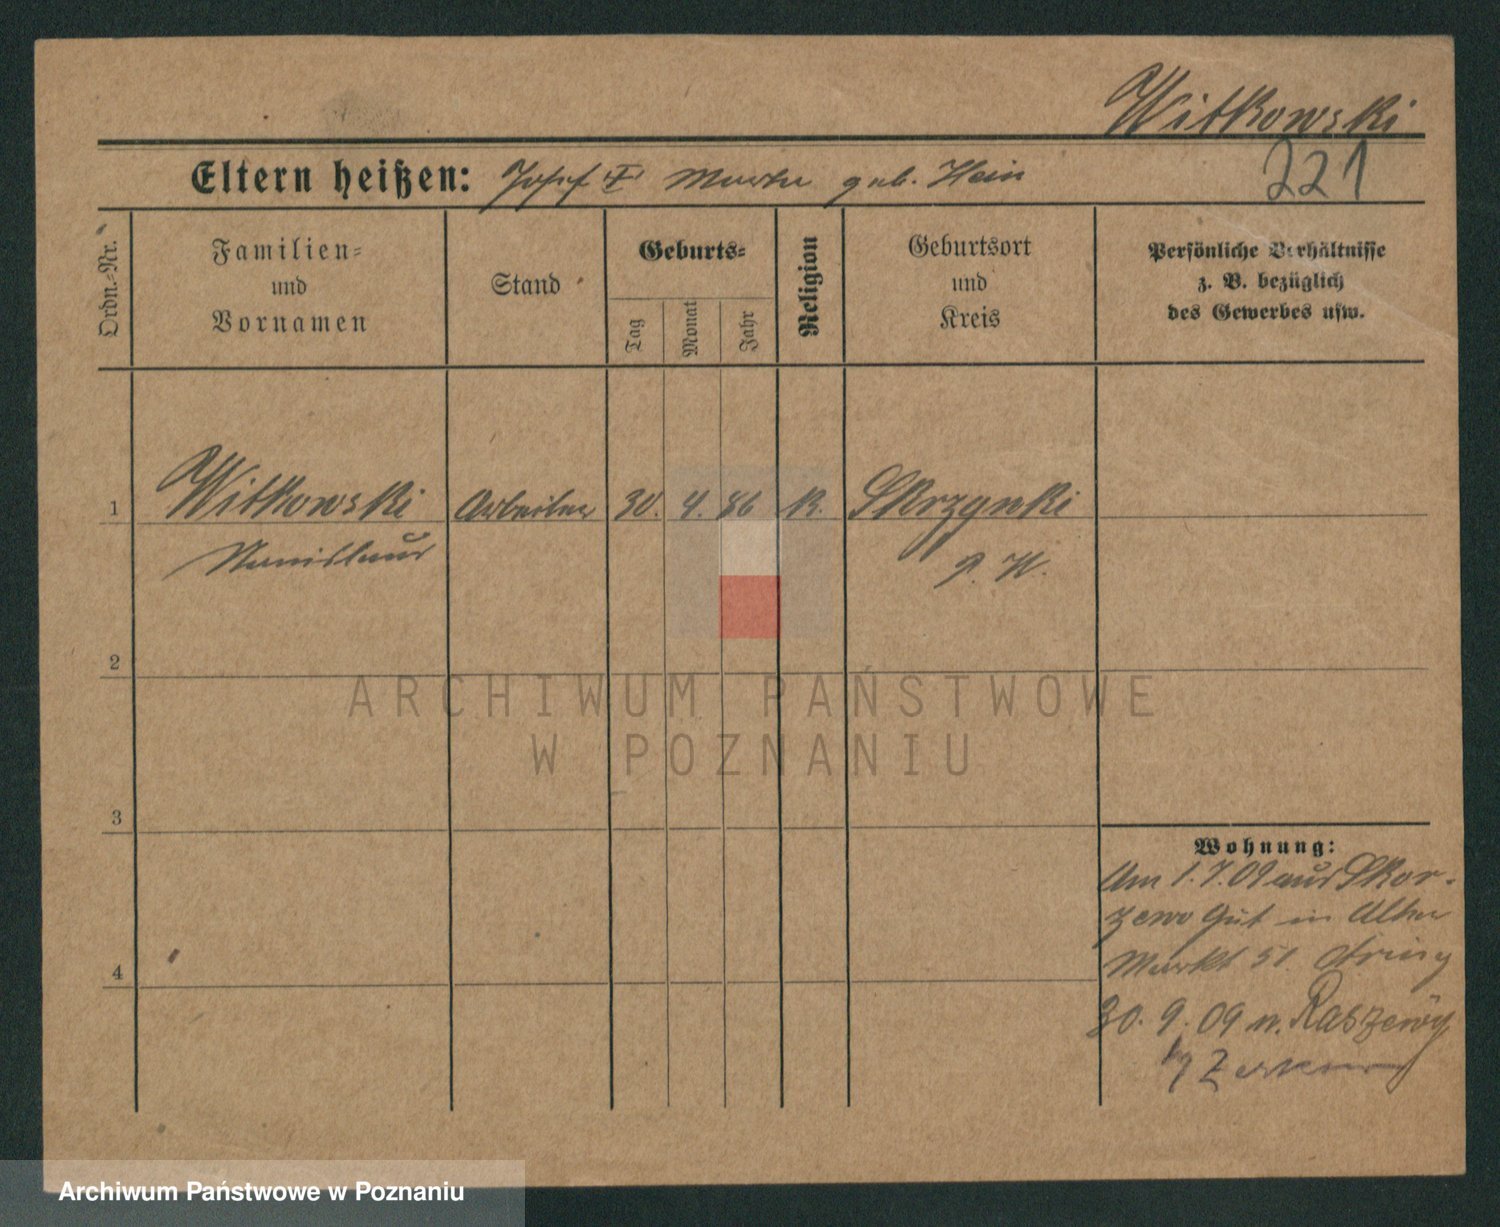 Witkowski
221
Eltern heißen: Josef † Marta geb. Hein
Ordn.-Nr.
Familien-
und
Vornamen
Stand
Geburts-
Tag
Monat
Jahr
Religion
Geburtsort
und
Kreis
Persönliche Verhältnisse
z. B. bezüglich
des Gewerbes usw.
1 Witkowski Arbeiter 30. 4. 86 K. Skrzynki
Stanislaus P. W.
2
ARCHIWUM PAŃSTWOWE
W POZNANIU
3
4
Wohnung:
Am 1.7.09 aus Skor-
zewo Gut in Alter
Markt 51.
30. 9. 09 n. Raszewy
Archiwum Państwowe w Poznaniu